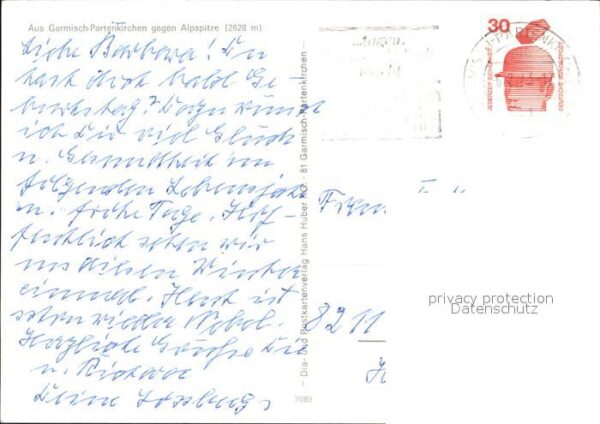 Aus Garmisch-Partenkirchen gegen Alpspitze (2628 m)
Liebe Barbara! Du
hast doch bald Ge-
burtstag? Dazu wünsche
ich Dir viel Glück
u. Gesundheit im
folgenden Lebensjahr
u. frohe Tage. Hof-
fentlich sehen wir
uns diesen Winter
einmal. Heut ist
schon wieder Nebel.
Herzliche Grüße Dir
u.
Deine
Dia- und Postkartenverlag Hans Huber KG · 81 Garmisch-Partenkirchen
7089
30
JEDERZEIT SICHERHEIT
DEUTSCHE BUNDESPOST
Frau
8211
privacy protection
Datenschutz